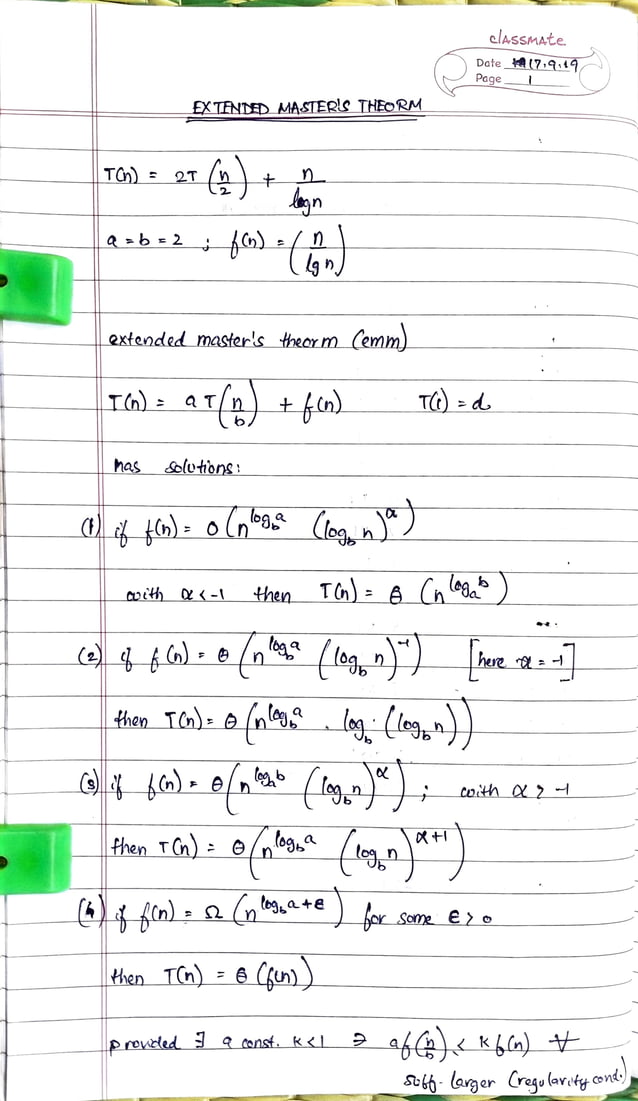 classmate
Date 17.9.19
Page 1
EXTENDED MASTER'S THEORM
T(n) = 2T (n/2) + n/logn
a = b = 2 ; f(n) = (n/lg n)
extended master's theorm (emm)
T(n) = a T(n/b) + f(n) T(1) = d
has solutions:
(1) if f(n) = O(n^{log_b a} (log_b n)^α)
with α < -1 then T(n) = θ (n^{log_a b})
(2) if f(n) = θ (n^{log_b a} (log_b n)^{-1}) [here α = -1]
then T(n) = θ (n^{log_b a} . log_b (log_b n))
(3) if f(n) = θ(n^{log_a b} (log_b n)^α) ; with α > -1
then T(n) = θ(n^{log_b a} (log_b n)^{α+1})
(4) if f(n) = Ω (n^{log_b a + ε}) for some ε > 0
then T(n) = θ (f(n))
provided ∃ a const. K<1 ∋ af(n/b) ≤ K f(n) ∀
suff. larger (regularity cond.)